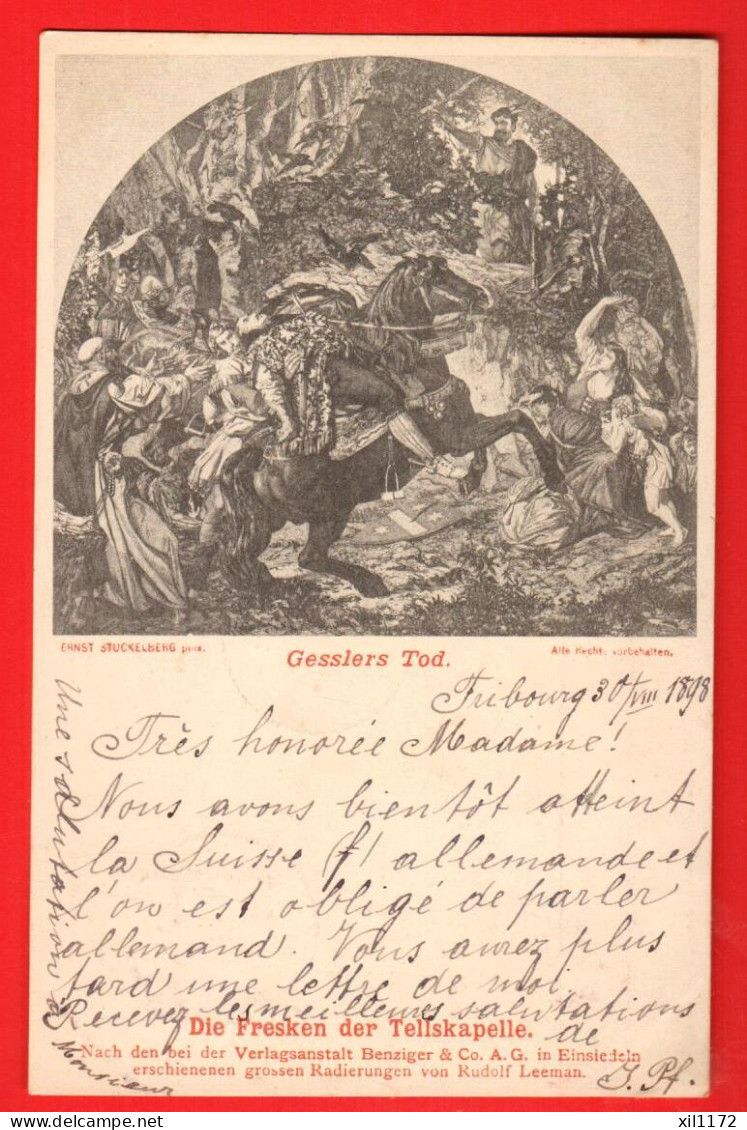 ERNST STUCKELBERG pinx.
Gesslers Tod.
Alle Rechte vorbehalten.
Fribourg 30/VIII 1898
Très honorée Madame!
Nous avons bientôt atteint
la Suisse (f) allemande et
l'on est obligé de parler
allemand. Vous aurez plus
tard une lettre de moi.
Recevez les meilleures salutations
de
J. Pf.
Une salutation à
Monsieur
Die Fresken der Tellskapelle.
Nach den bei der Verlagsanstalt Benziger & Co. A. G. in Einsiedeln
erschienenen grossen Radierungen von Rudolf Leeman.
xil1172